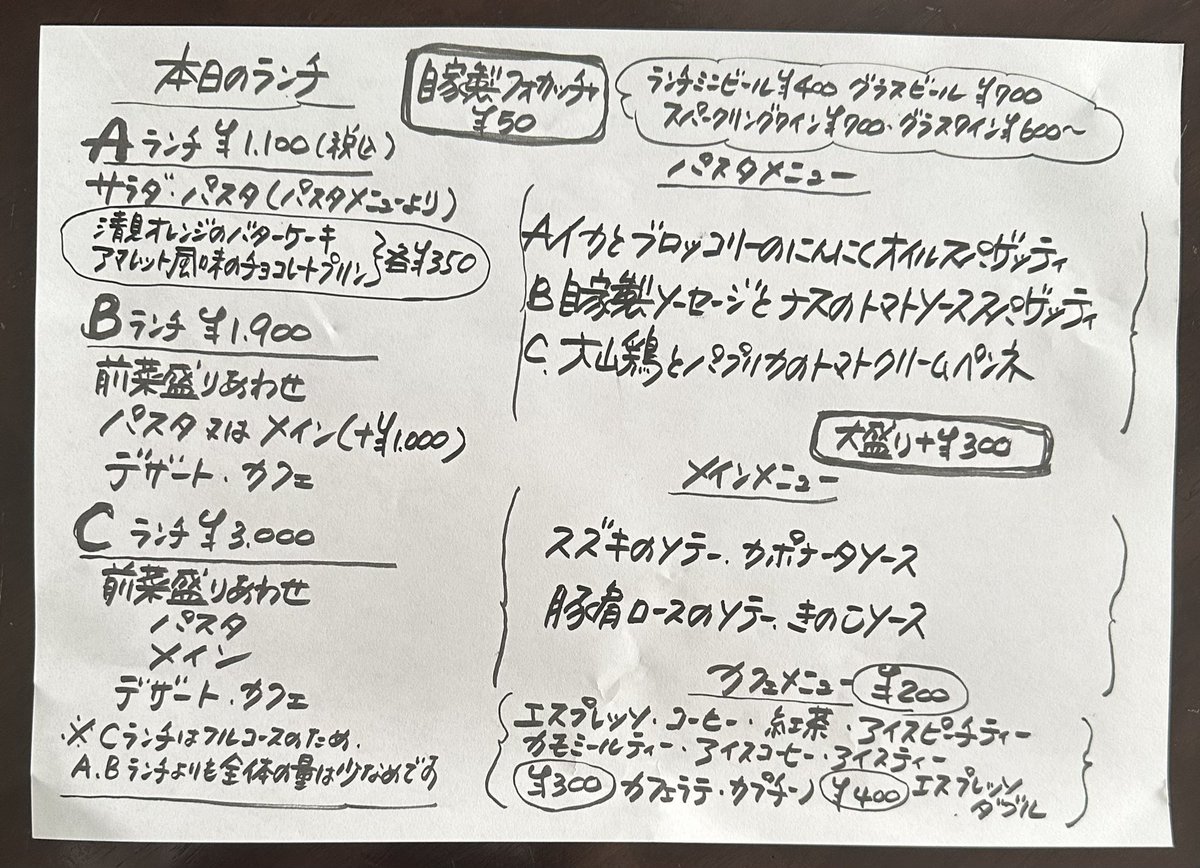 本日のランチ
Aランチ ¥1.100(税込)
サラダ・パスタ(パスタメニューより)
清見オレンジのバターケーキ
アマレット風味のチョコレートプリン}各¥350
Bランチ ¥1.900
前菜盛りあわせ
パスタ又はメイン(+¥1.000)
デザート・カフェ
Cランチ ¥3.000
前菜盛りあわせ
パスタ
メイン
デザート・カフェ
※Cランチはフルコースのため、
A.Bランチよりも全体の量は少なめです
自家製フォカッチャ
¥50
ランチミニビール¥400 グラスビール ¥700
スパークリングワイン¥700・グラスワイン¥600〜
パスタメニュー
Aイカとブロッコリーのにんにくオイルスパゲッティ
B自家製ソーセージとナスのトマトソーススパゲッティ
C. 大山鶏とパプリカのトマトクリームペンネ
大盛り+¥300
メインメニュー
スズキのソテー、カポナータソース
豚肩ロースのソテー、きのこソース
カフェメニュー ¥200
エスプレッソ・コーヒー・紅茶・アイスピーチティー
カモミールティー・アイスコーヒー・アイスティー
¥300 カフェラテ・カプチーノ ¥400 エスプレッソ
ダブル